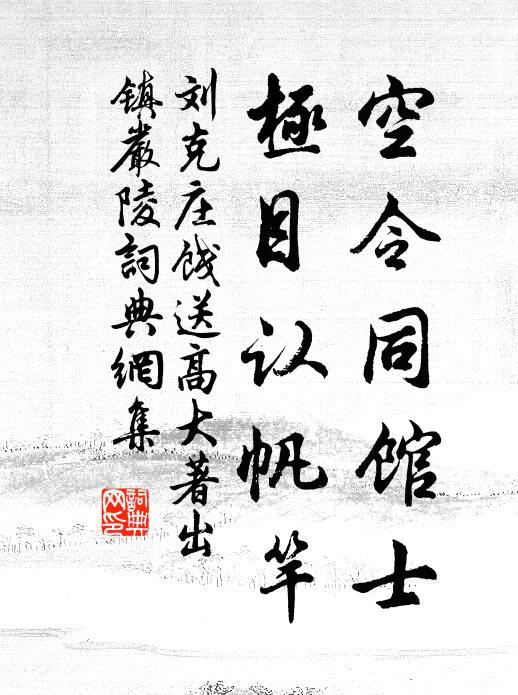 空令同馆士
極目认帆竿
刘克庄饯送高大著出
镇嚴陵詞典網集
詞典网印